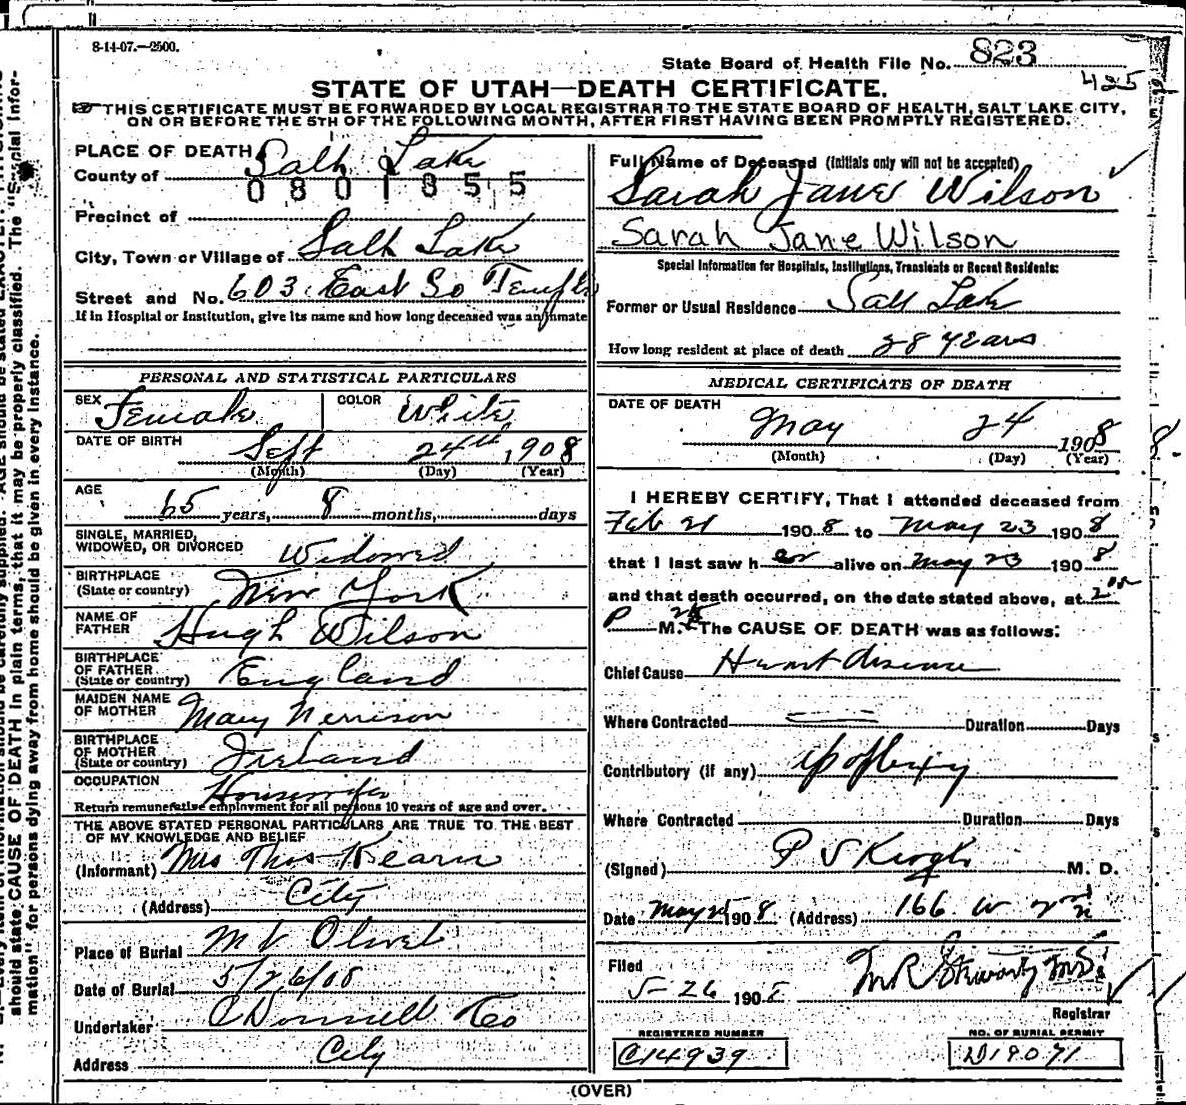 8-14-07.—2500.
State Board of Health File No. 823
425
STATE OF UTAH—DEATH CERTIFICATE.
THIS CERTIFICATE MUST BE FORWARDED BY LOCAL REGISTRAR TO THE STATE BOARD OF HEALTH, SALT LAKE CITY,
ON OR BEFORE THE 5TH OF THE FOLLOWING MONTH, AFTER FIRST HAVING BEEN PROMPTLY REGISTERED.
PLACE OF DEATH
County of Salt Lake
0801855
Precinct of
City, Town or Village of Salt Lake
Street and No. 603 East So Temple
If in Hospital or Institution, give its name and how long deceased was an inmate
PERSONAL AND STATISTICAL PARTICULARS
SEX Female COLOR White
DATE OF BIRTH Sept 24th, 1908
(Month) (Day) (Year)
AGE
65 years, 8 months, days
SINGLE, MARRIED,
WIDOWED, OR DIVORCED Widowed
BIRTHPLACE
(State or country) New York
NAME OF
FATHER Hugh Wilson
BIRTHPLACE
OF FATHER
(State or country) England
MAIDEN NAME
OF MOTHER Mary Nerrison
BIRTHPLACE
OF MOTHER
(State or country) Ireland
OCCUPATION Housewife
Return remunerative employment for all persons 10 years of age and over.
THE ABOVE STATED PERSONAL PARTICULARS ARE TRUE TO THE BEST
OF MY KNOWLEDGE AND BELIEF
(Informant) Mrs Thos Kearn
(Address) City
Place of Burial Mt Olivet
Date of Burial 5/26/08
Undertaker O'Donnell & Co
Address City
Full Name of Deceased (initials only will not be accepted)
Sarah Jane Wilson
Sarah Jane Wilson
Special Information for Hospitals, Institutions, Transients or Recent Residents:
Former or Usual Residence Salt Lake
How long resident at place of death 28 years
MEDICAL CERTIFICATE OF DEATH
DATE OF DEATH
May 24 1908
(Month) (Day) (Year)
I HEREBY CERTIFY, That I attended deceased from
Feb 21 1908 to May 23 1908
that I last saw her alive on May 23 1908
and that death occurred, on the date stated above, at 2
P M. The CAUSE OF DEATH was as follows:
Chief Cause Heart disease
Where Contracted Duration Days
Contributory (if any) apoplexy
Where Contracted Duration Days
(Signed) P S Keogh M. D.
Date May 25 1908 (Address) 166 W 2nd
Filed
5-26 1908 M R Stewart M.D.
Registrar
REGISTERED NUMBER
C14939
NO. OF BURIAL PERMIT
D18071
(OVER)
should state CAUSE OF DEATH in plain terms, that it may be properly classified. The "Special Infor-
mation" for persons dying away from home should be given in every instance.